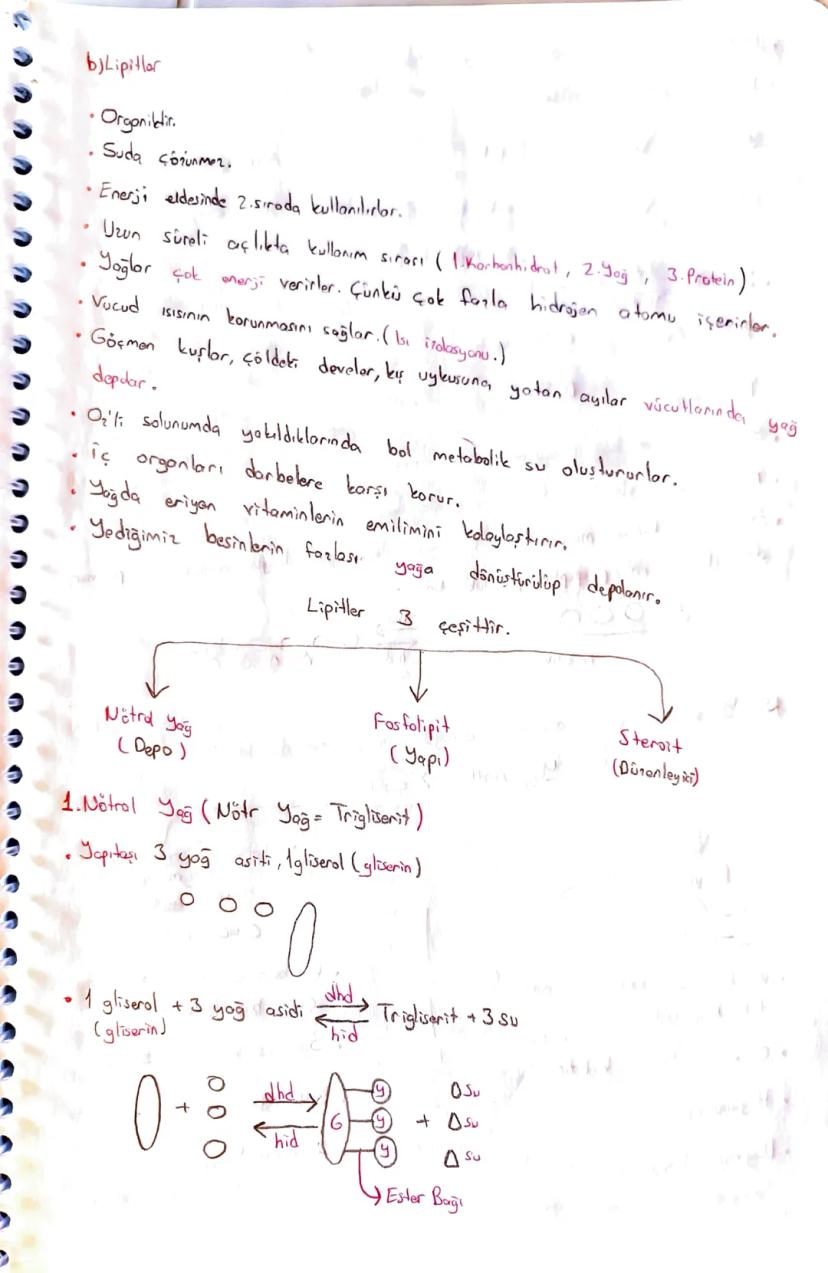 b)Lipitler
• Organiktir.
• Suda çözünmez.
• Enerji eldesinde 2.sırada kullanılırlar.
• Uzun süreli açlıkta kullanım sırası (1.Karbonhidrat, 2.Yağ, 3.Protein)
• Yağlar çok enerji verirler. Çünkü çok fazla hidrojen atomu içerirler.
• Vücud ısısının korunmasını sağlar.(Isı izolasyonu.)
• Göçmen kuşlar, çöldeki develer, kış uykusuna yatan ayılar vücutlarında yağ
depolar.
• O₂'li solunumda yakıldıklarında bol metabolik su oluştururlar.
• İç organları darbelere karşı korur.
• Yağda eriyen vitaminlerin emilimini kolaylaştırır.
• Yediğimiz besinlerin fazlası yağa dönüştürülüp depolanır.
Lipitler 3 çeşittir.
Nötral Yağ
(Depo)
Fosfolipit
(Yapı)
Steroit
(Düzenleyici)
1.Nötral Yağ (Nötr Yağ = Trigliserit)
• Yapıtaşı 3 yağ asiti, 1gliserol (gliserin)
• 1 gliserol + 3 yağ asidi dhd Trigliserit + 3 su
(gliserin) hid
+ dhd G y + su
hid y su
y su
Ester Bağı